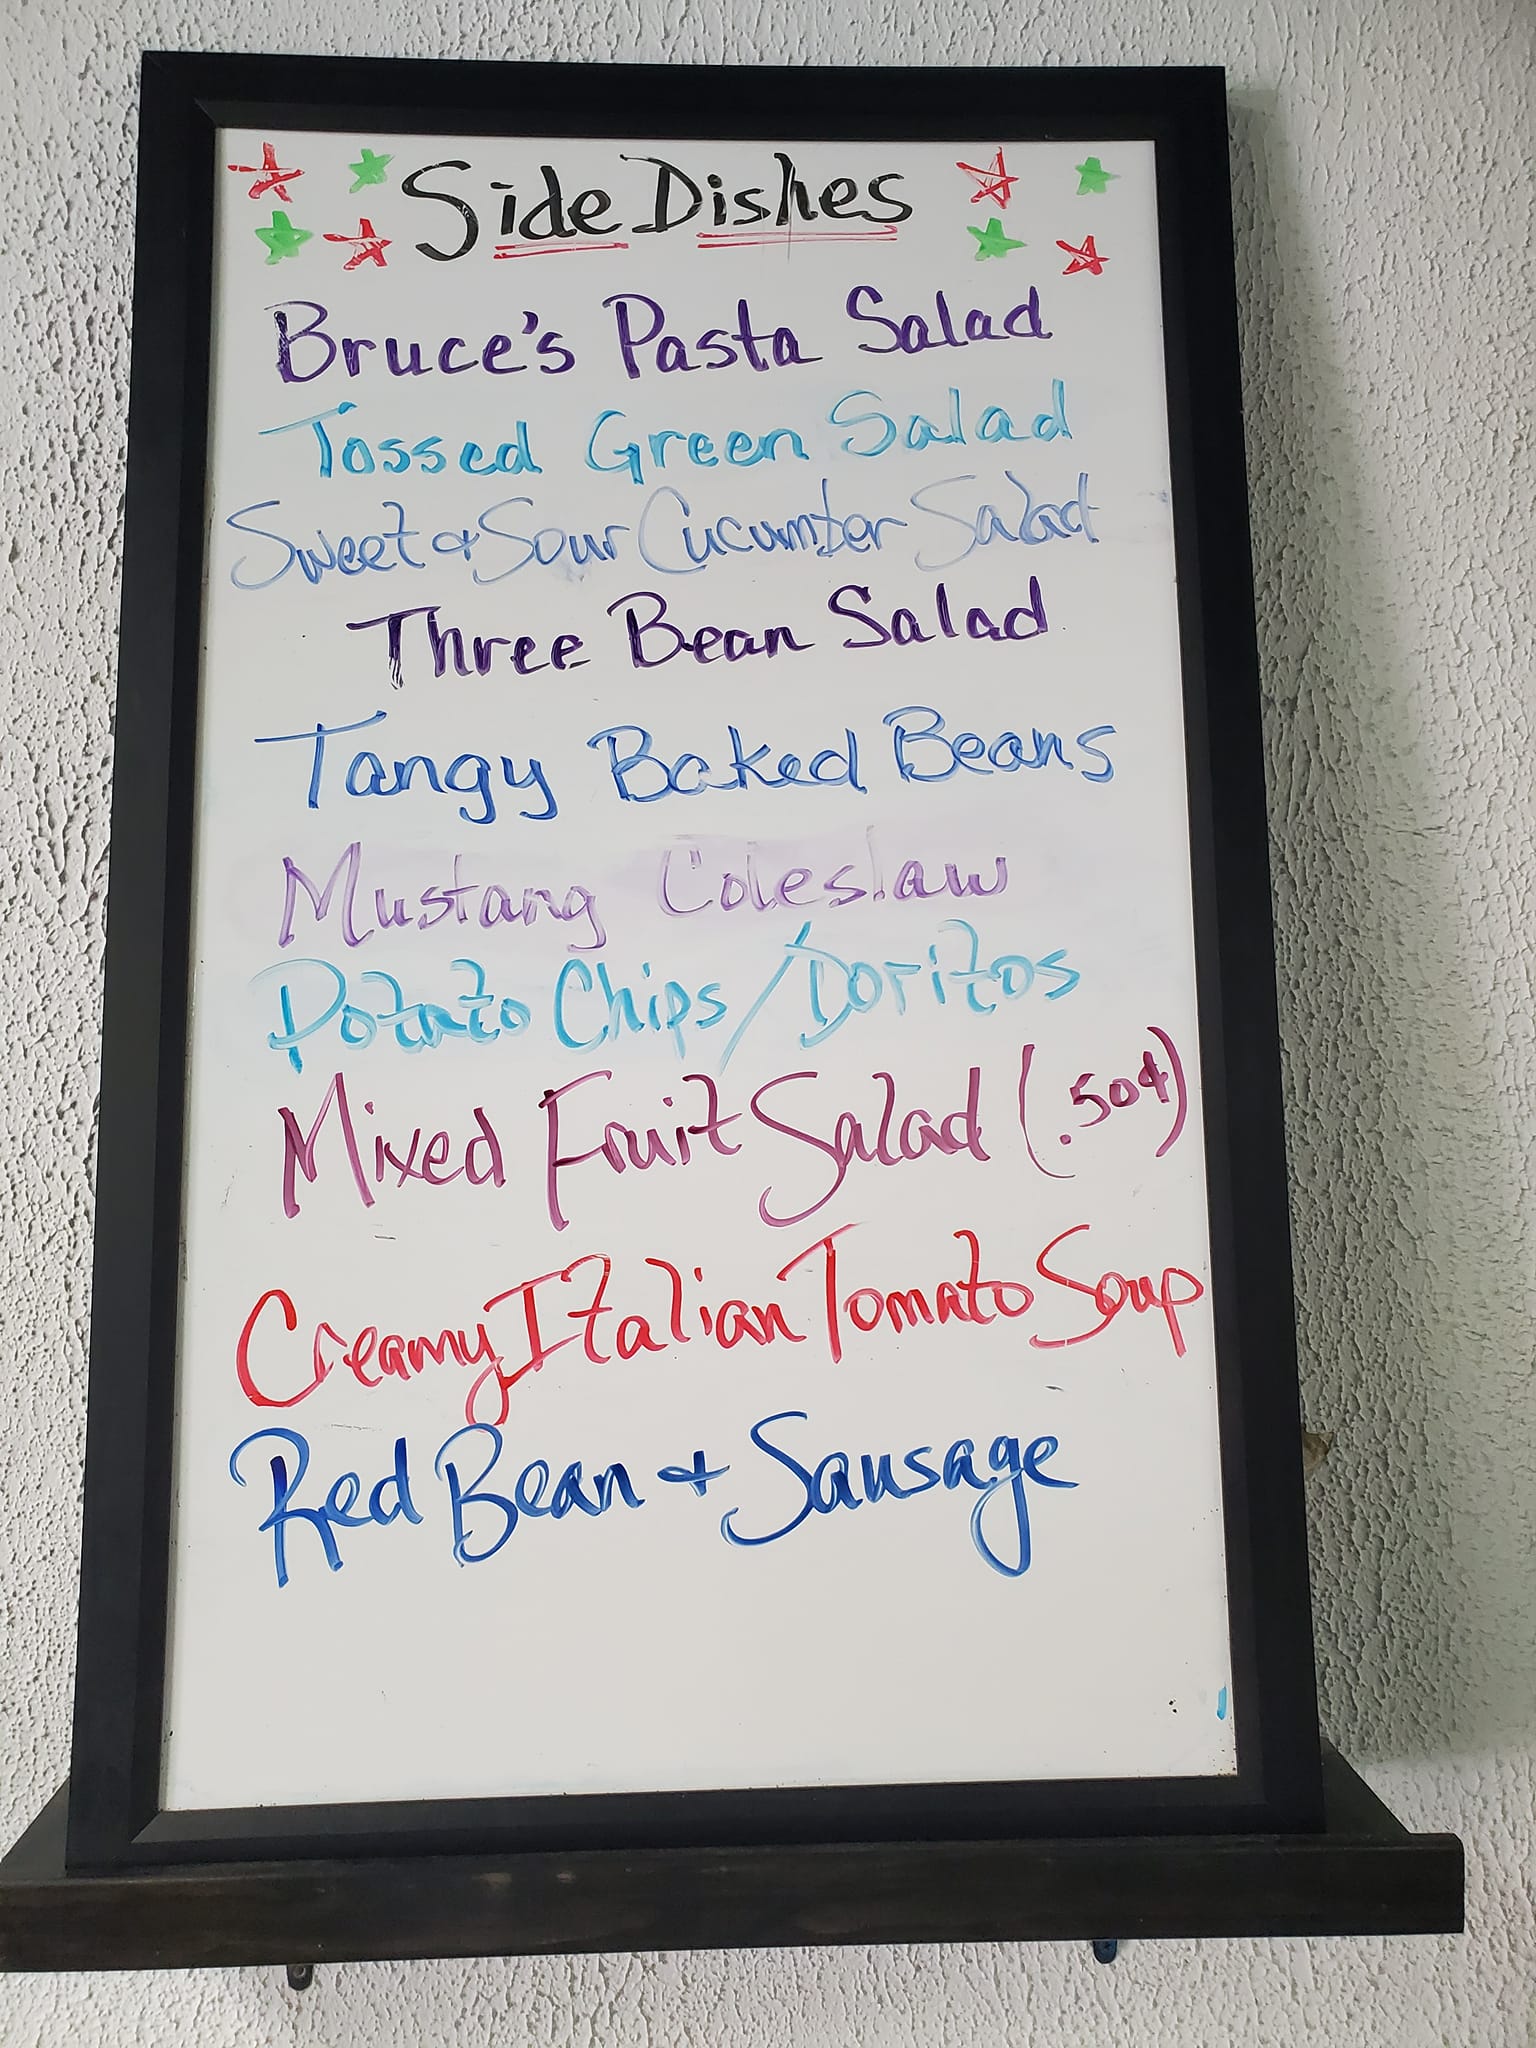 Side Dishes
Bruce's Pasta Salad
Tossed Green Salad
Sweet & Sour Cucumber Salad
Three Bean Salad
Tangy Baked Beans
Mustang Coleslaw
Potato Chips/Doritos
Mixed Fruit Salad (.50¢)
Creamy Italian Tomato Soup
Red Bean & Sausage